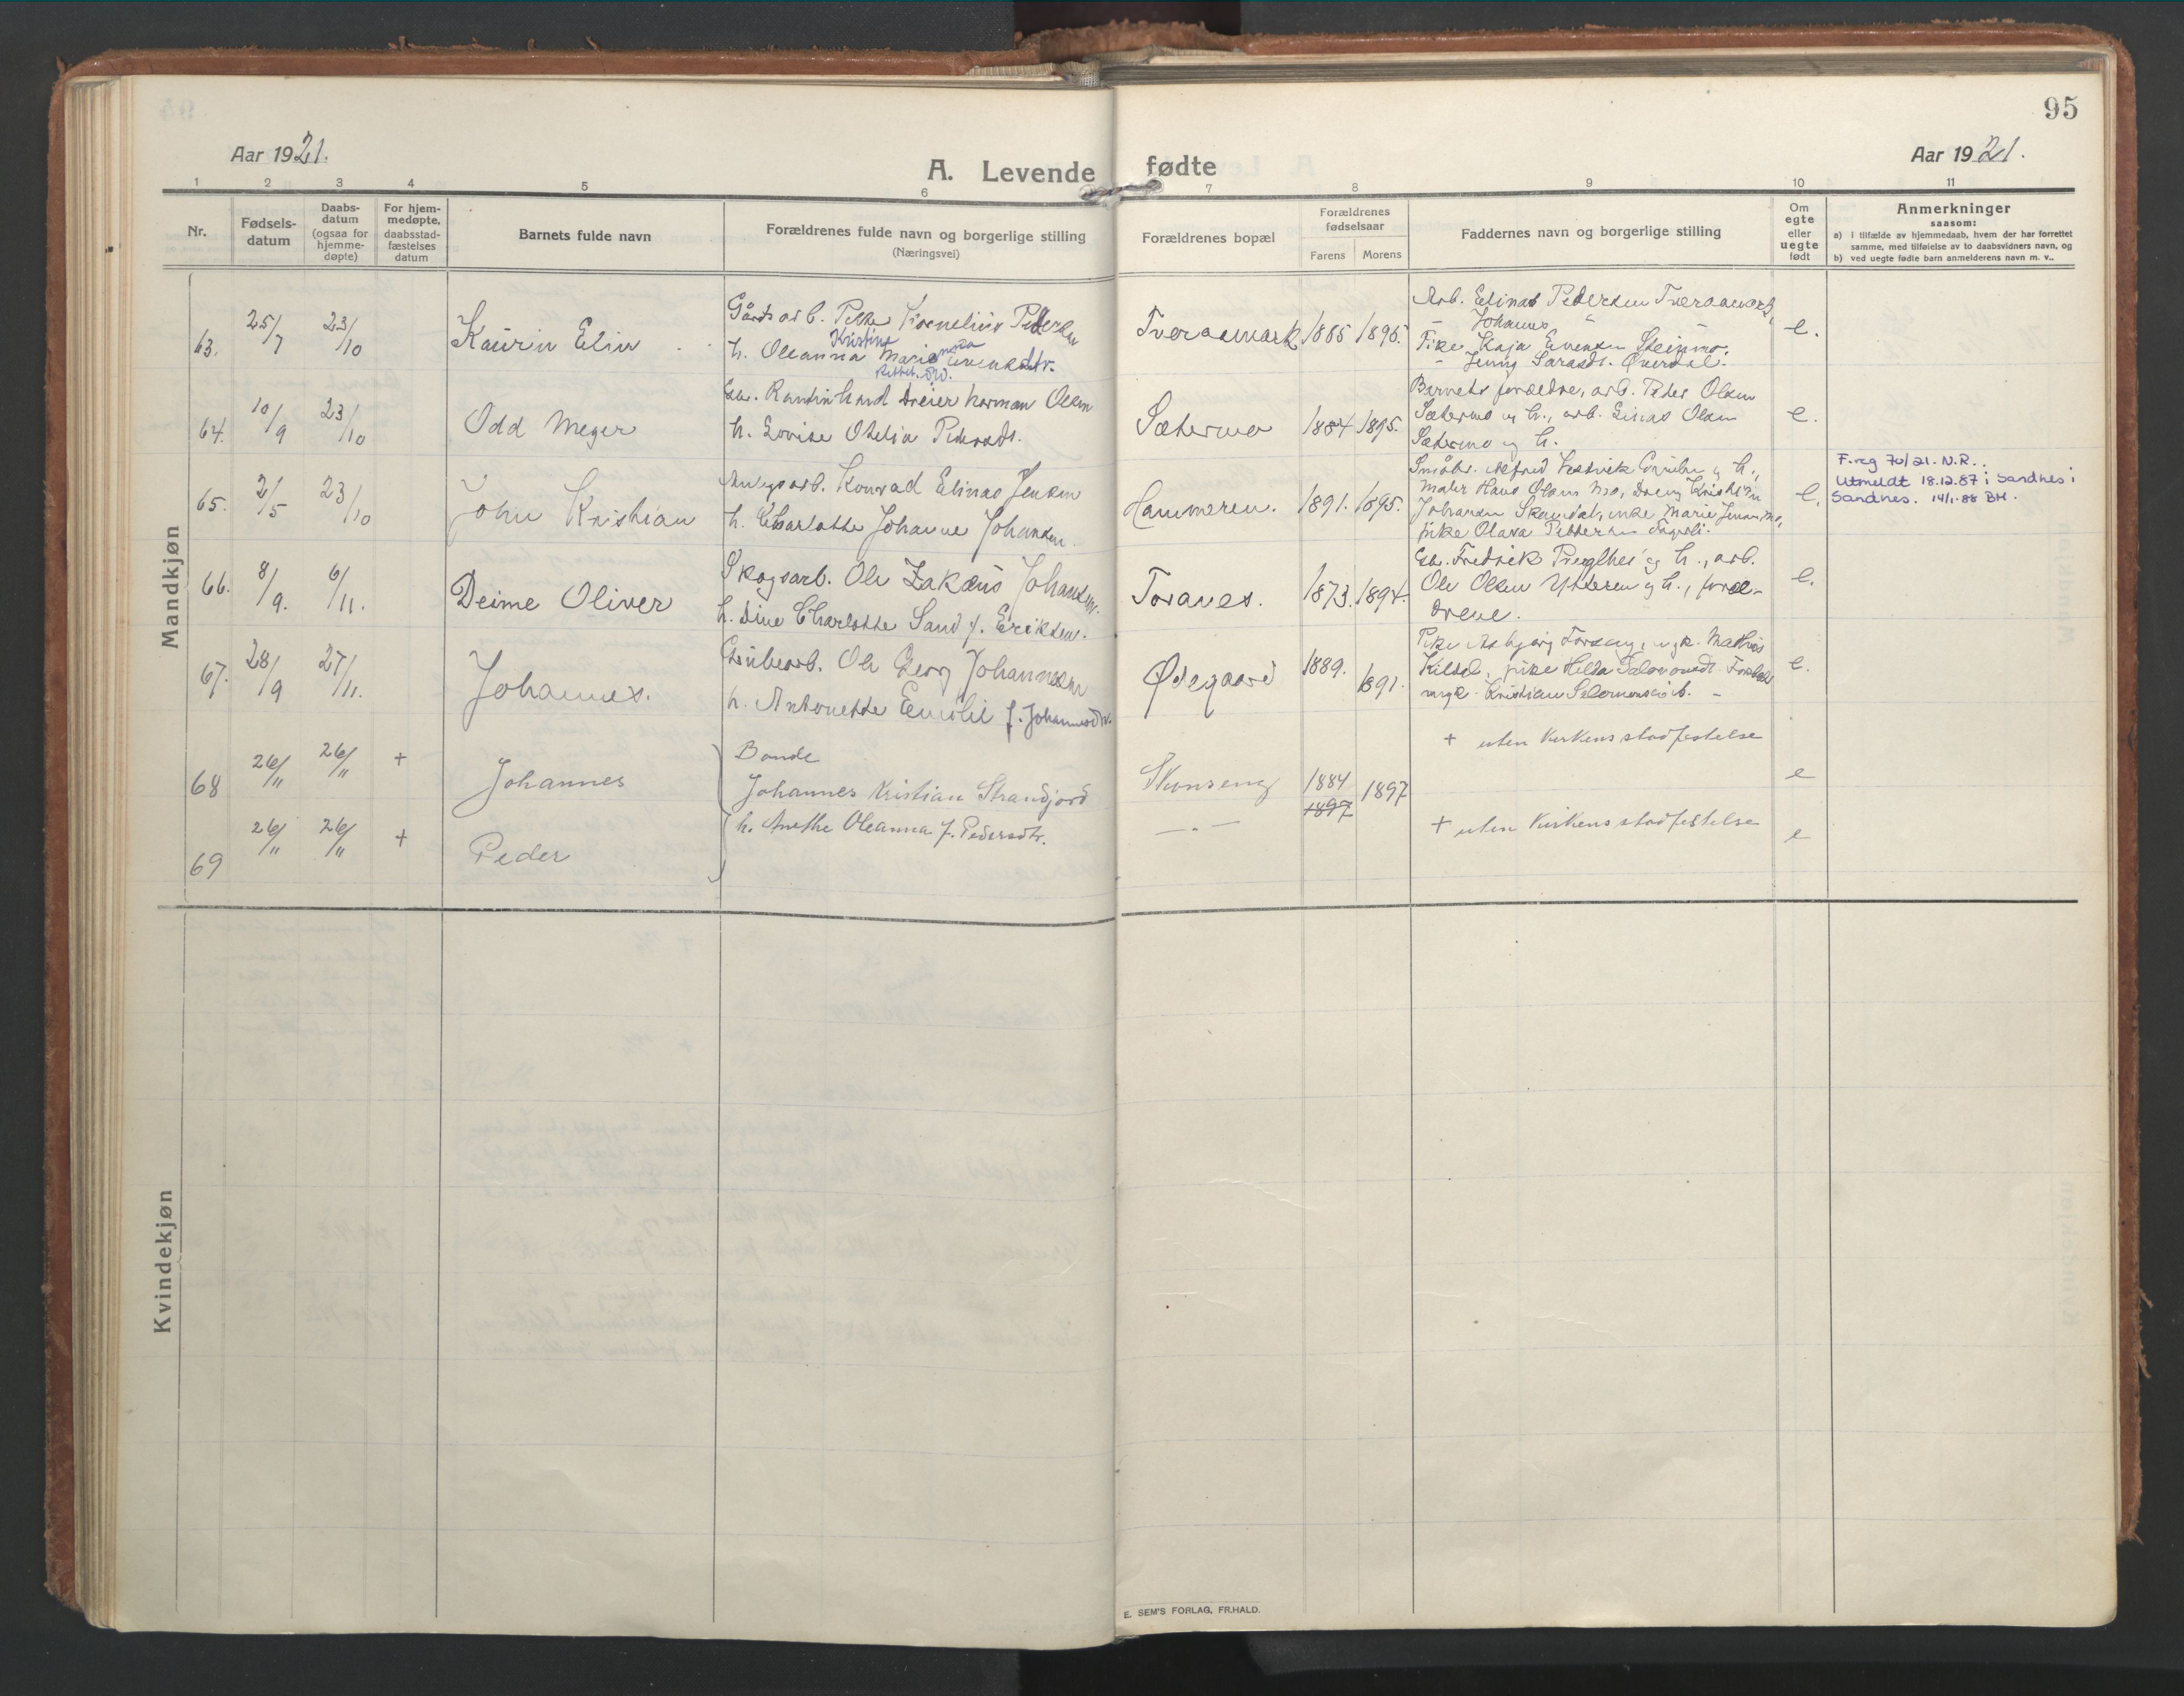 95
Aar 1921.
Aar 1921.
A. Levende fødte
1 2 3 4 5 6 7 8 9 10 11
Nr.
Fødsels-
datum
Daabs-
datum
(ogsaa for
hjemme-
døpte)
For hjem-
medøpte,
daabsstad-
fæstelses
datum
Barnets fulde navn
Forældrenes fulde navn og borgerlige stilling
(Næringsvei)
Forældrenes bopæl
Forældrenes
fødselsaar
Farens Morens
Faddernes navn og borgerlige stilling
Om
egte
eller
uegte
født
Anmerkninger
saasom:
a) i tilfælde av hjemmedaab, hvem der har forrettet
samme, med tilføielse av to daabsvidners navn, og
b) ved uegte fødte barn anmelderens navn m. v..
Mandkjøn
63. 25/7 23/10 Kaurin Elin
Gårdsarb. Peder Kornelius Pedersen
Kristine
h. Oleanna Marie Evensdtr.
Rettet.
Tveraamark 1885 1895.
Arb. Edinas Pedersen Tveraamark,
- Johannes "
Pike Kaja Evensen Steinmo.
- Jenny Larsdt. Øverdal.
e.
64. 10/9 23/10 Odd Meyer
Dreier Norman Olsen
h. Lovise Otelia Pedersdt.
Sætermo 1884 1895.
Barnets forældre, arb. Peder Olsen
Sætermo og h., arb. Einar Olsen
Sætermo og h.
e.
65. 2/5 23/10 John Kristian
Anlegsarb. Konrad Elinas Jensen
h. Charlotte Johanne Johansen
Hammeren. 1891. 1895.
Småbr. Alfred og h.,
maler Hans Olsen Mo, Dreng Kristian
Johansen Marie Jensen Mo,
pike Olava Pettersen
e.
F.reg 70/21. N.R.
Utmeldt 18.12.87 i Sandnes i
Sandnes. 14/1-88 BM.
66. 8/9. 6/11. Deime Oliver
Skogsarb. Ole Zakæus Johansen.
h. Dine Charlotte Sand f. Eriksen.
Toranes. 1873. 1894.
Fredrik og h., arb.
Ole Olsen Ytteren og h., foræl-
drene.
e.
67. 28/9 27/11. Johannes.
Grubearb. Ole Georg Johannesen
h. Antonette Emilie f. Johannesdtr.
Ødegaard 1889. 1891.
Pike Asbjørg Forsberg, ugk. Mathis
pike Helda Salomonsdt.
ungk. Kristian
e.
68 26/11 26/11 + Johannes
Bonde
Johannes Kristian Strandjord
h. Anethe Oleanna f. Pedersdtr.
Skonseng 1884 1897
1897
+ uten kirkens stadfestelse
e
69 26/11 26/11 + Peder
— " —
+ uten kirkens stadfestelse
e
Kvindekjøn
E. SEM'S FORLAG, FR.HALD.